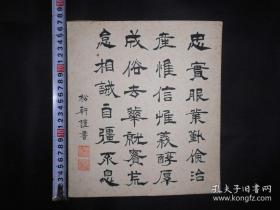 忠實服業勤儉治
產惟信惟義醇厚
成俗去華就實荒
怠相誡自彊不息
松軒謹書
孔夫子旧书网